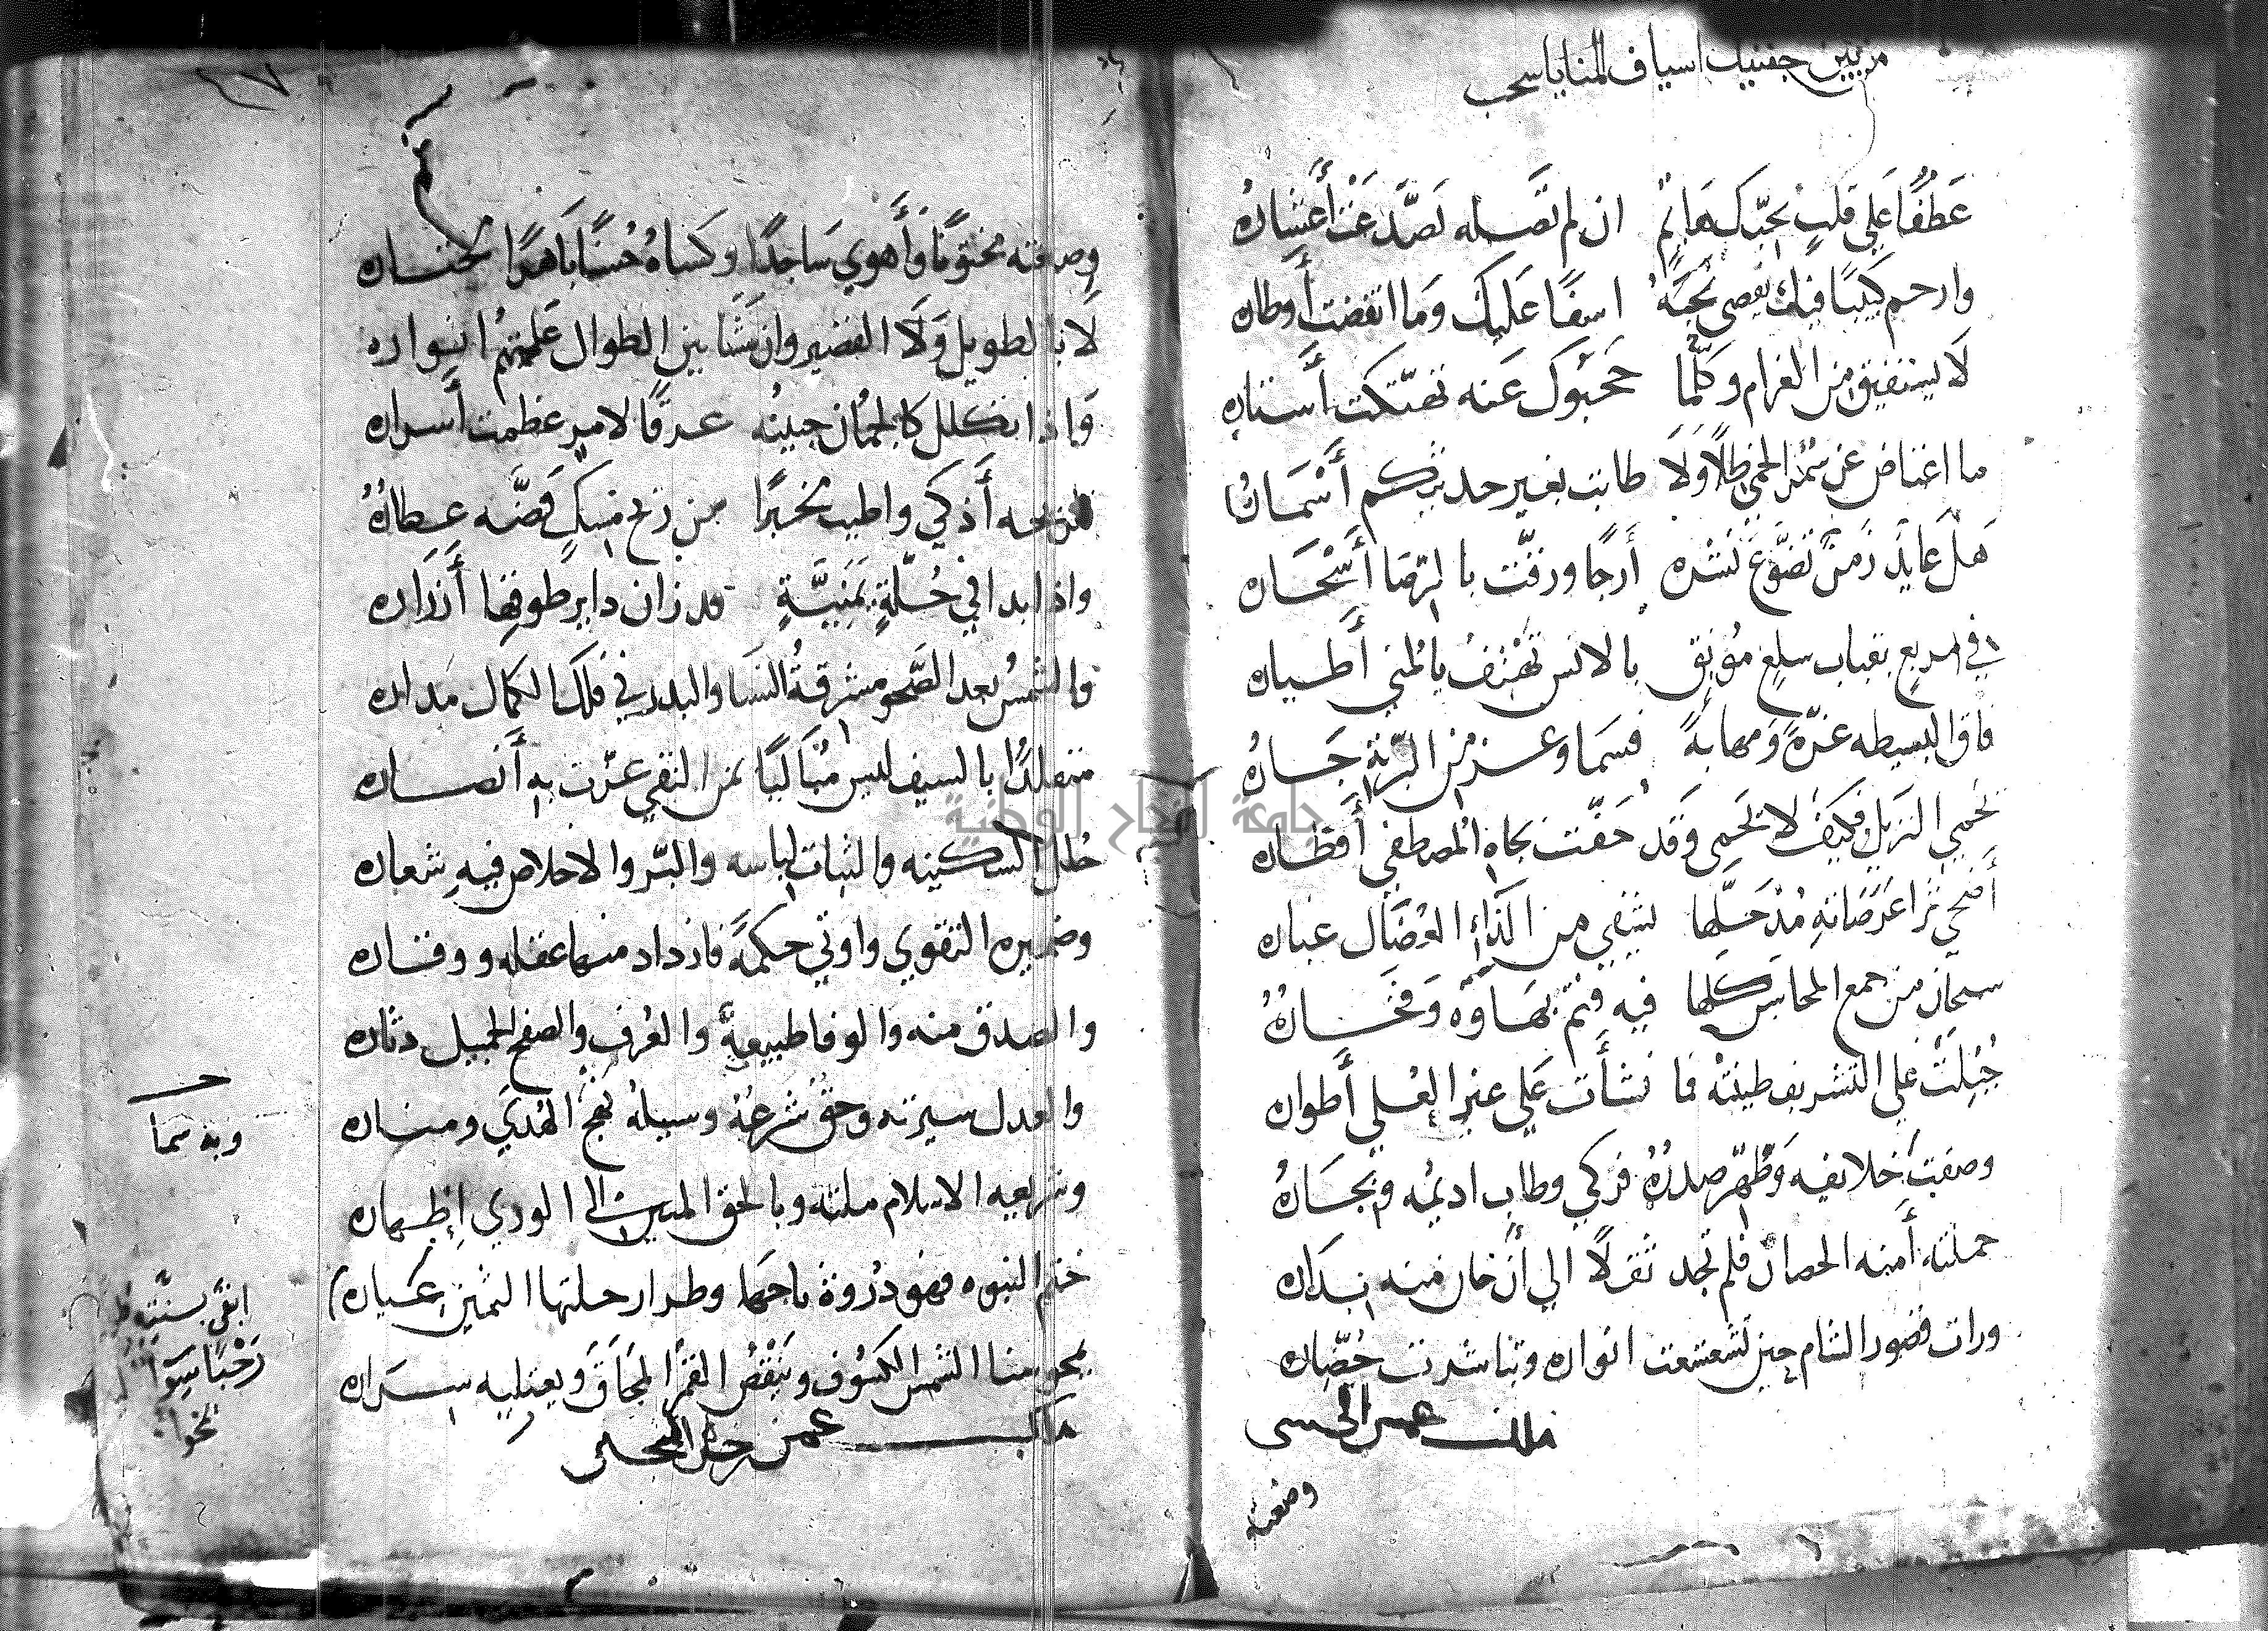 من بين جفنيك اسياف المنايا سحب
عَطفًا عَلي قلبٍ بحبّك هَائمٌ ان لم تَصله تَصدَّعَت أعشارهُ
وارحم كئيبًا فيك يقضى نحبَهُ اسفًا عَليك وَما انقضت أوطاره
لَا يستفيق من الغرام وَكلَّما حَجَبوك عَنه تهتّكت أستاره
ما اعتاض عن سَمُر الحمى ظلًا وَلَا طابت بغير حديثكم أسْمَارهُ
هَل عَايدٌ زمنٌ تضوَّعَ نَشره أَرجًا ورقّت بالرّضا أَسْحَاره
في مربعٍ بقباب سلعٍ مُونِقٍ بالانس تَهْتفُ بالمُنى أطياره
فاق البسيطه عزّةً وَمهابةً فسَما وعز من البريّة جَارهُ
تَحمي النزيل فكيفَ لا تَحمى وَقد حَفّت بجاهِ المصطفى أقطاره
أَضحى ثرَا عَرَصَاتهِ مُذ حَلّها يشفي من الدّاءِ العُضَال غباره
سبحان من جمع المحاسن كلها فيه فتمّ بَهَاوَه وَفَخَارهُ
جُبِلَتْ على التشريف طينتهُ فما نشأت عَلي غير العُلي أطواره
وصَفت خلايقه وَطُهّر صدرُهُ فزكي وطاب اديمُه ونجَارهُ
حملته أمنه الحصان فلم تجد ثقلًا الي أَن حان منه بدَاره
ورات قصور الشام حين تشعشعت انواره وتباشرت حُضّاره
ملك عمر الحسى
وضعته
وضعته مختونًا وأهوي سَاجدًا وكَساهُ حُسنًا باهرًا مختاره
لا بالطويل وَلَا القصير وان مَشَا بين الطوال عَلَتهُم انواره
وَاذا تكلل كالجُمَان جبينُه عرقًا لامرٍ عظمت أَسراره
فلريحه أَذكي واطيب مخبرًا من ريح مسكٍ فَضّه عطارهُ
واذا بدا في حُلّةٍ يَمَنِيَّةٍ قد زان داير طوقها أَزرَاره
والشمسُ بعد الصَّحو مشرقةُ السَنا والبدر في فلك الكمال مَداره
متقلدًا بالسيف ليس مُبَاليًا بمن التقي عزّت به أَنصاره
حُلل السكينه والثبات لباسه والبرّ والاخلاص فيهِ شعاره
وضميره التقوي واوتي حكمةً فازداد منها عقله ووقاره
والصدق منه والوفا طبيعةٌ والعُرف والصفح الجميل دثاره
والعدل سيرته وحقٌ شرعُهُ وسبيلهُ نَهجُ الهُديَ ومناره
وشريعة الاسلام ملته وبالحق المبين الى الوري إظهاره
ختم النبوه فهو ذُروة تاجهَا وطراز حلتها الثمين عيَاره
يمحو سنا الشمس الكسُوف وَينقُصُ القمَر المحَاقَ وَيعتليه سِرَاره
مالك عمر رجل المحلى
وبه سما